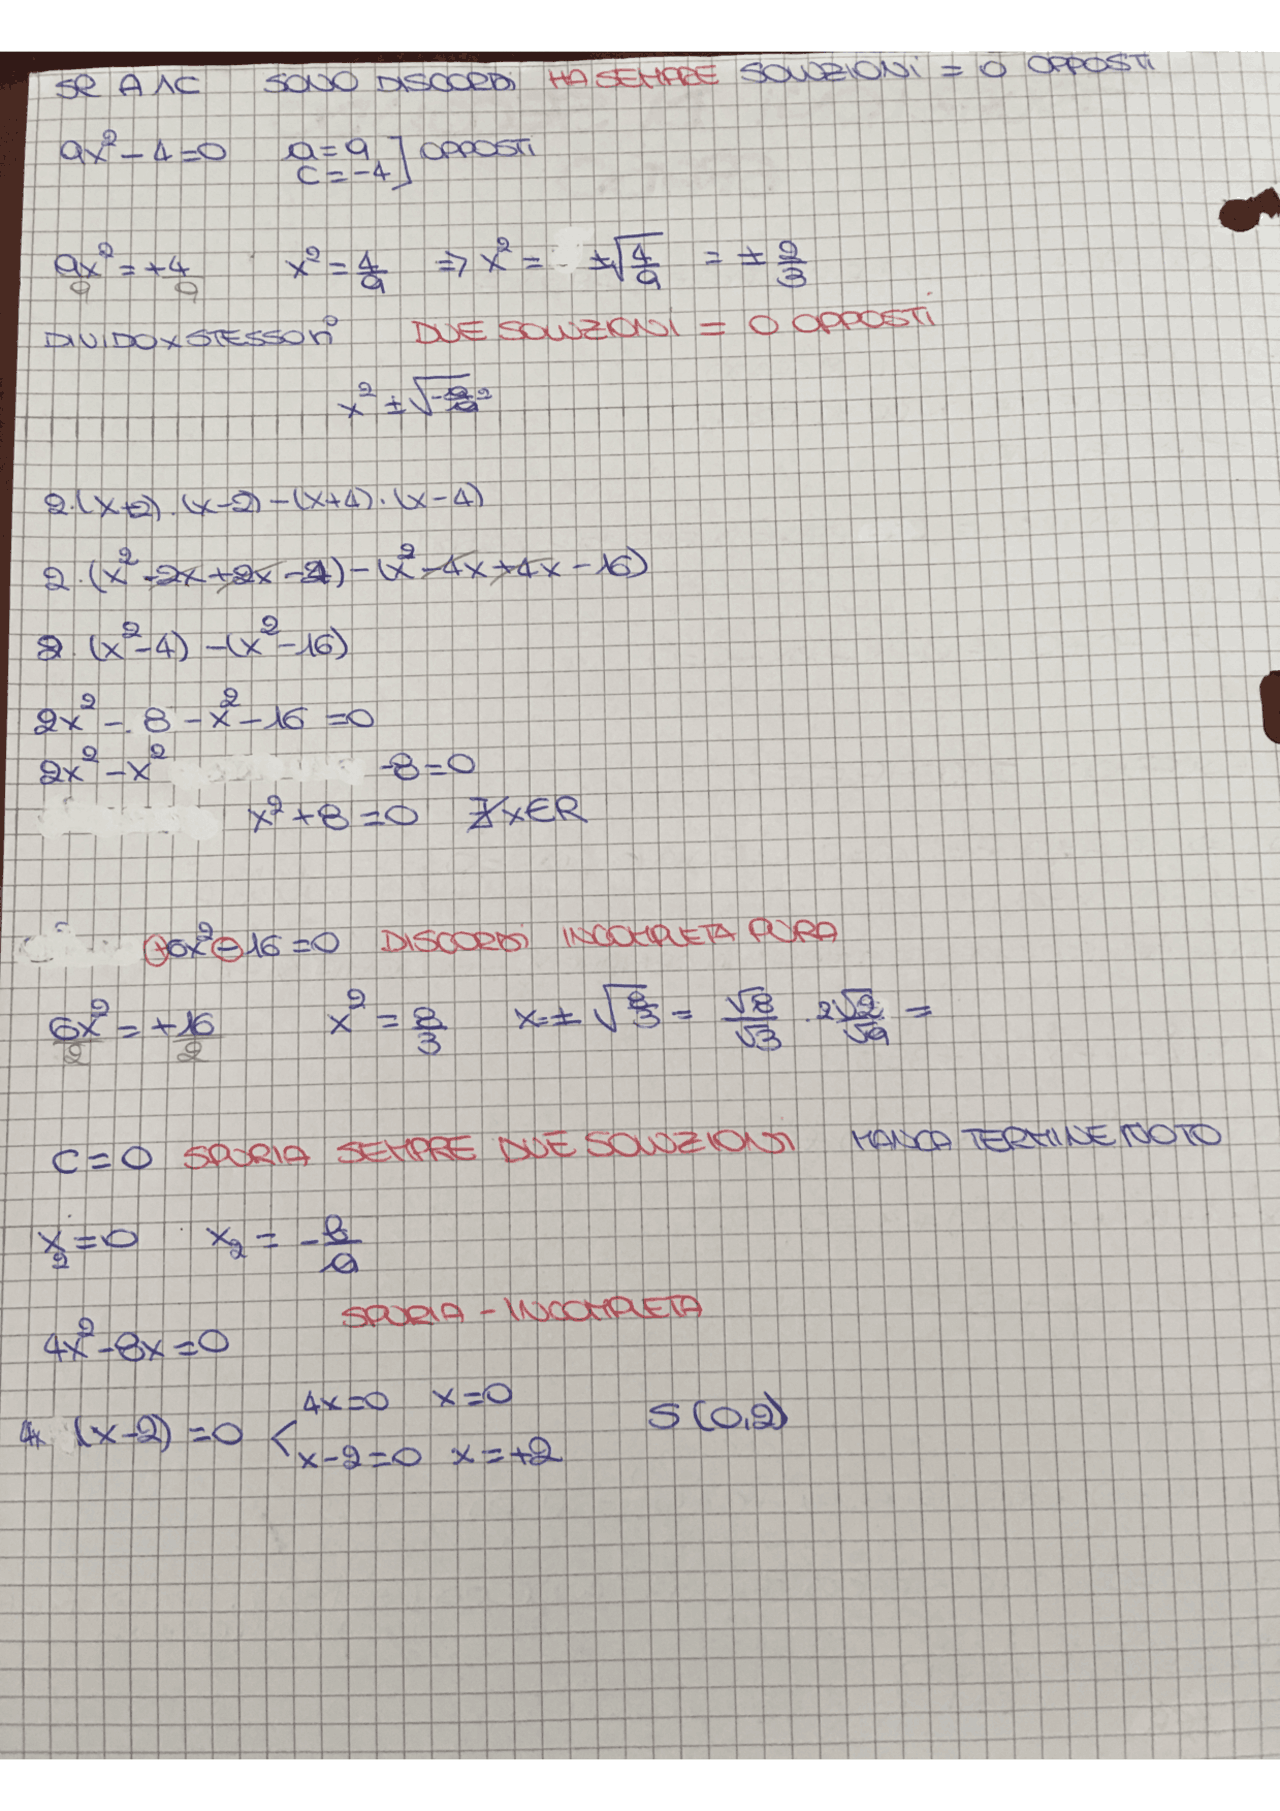 SE A ∧ C SONO DISCORDI HA SEMPRE SOLUZIONI = O OPPOSTI
9x² - 4 = 0 a = 9 ] OPPOSTI
c = -4
9x²/9 = +4/9 x² = 4/9 => x² = ±√4/9 = ± 2/3
DIVIDO x STESSO n° DUE SOLUZIONI = O OPPOSTI
x² ± √
2·(x+2)·(x-2)-(x+4)·(x-4)
2·(x²-2x+2x-4)-(x²-4x+4x-16)
2·(x²-4)-(x²-16)
2x²-8-x²-16=0
2x²-x² -8=0
x²+8=0 ∄x∈R
+6x²-16=0 DISCORDI INCOMPLETA PURA
6x²/2 = +16/2 x² = 8/3 x=± √8/3 = √8/√3 · 2√2/√9 =
C=0 SPURIA SEMPRE DUE SOLUZIONI MANCA TERMINE NOTO
x₂=0 x₂ = -8/9
SPURIA - INCOMPLETA
4x²-8x=0
4x=0 x=0
4x (x-2)=0 < S(0,2)
x-2=0 x=+2